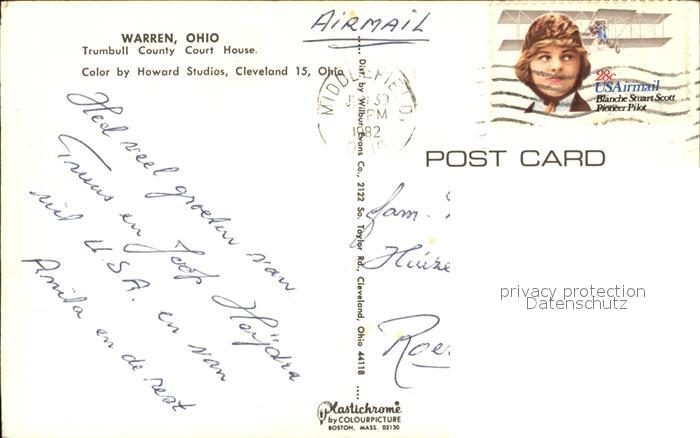 WARREN, OHIO
Trumbull County Court House.
Color by Howard Studios, Cleveland 15, Ohio
Heel veel groeten van
Truus en Joop Hoijdra
uit U.S.A. en van
Anita en de rest
Dist. by Wilbur Evans Co., 2122 So. Taylor Rd., Cleveland, Ohio 44118
Plastichrome
by COLOURPICTURE
BOSTON, MASS. 02130
AIRMAIL
MIDDLEFIELD,
30
PM
1982
28c
USAirmail
Blanche Stuart Scott
Pioneer Pilot
POST CARD
fam.
Huize
Roe
privacy protection
Datenschutz